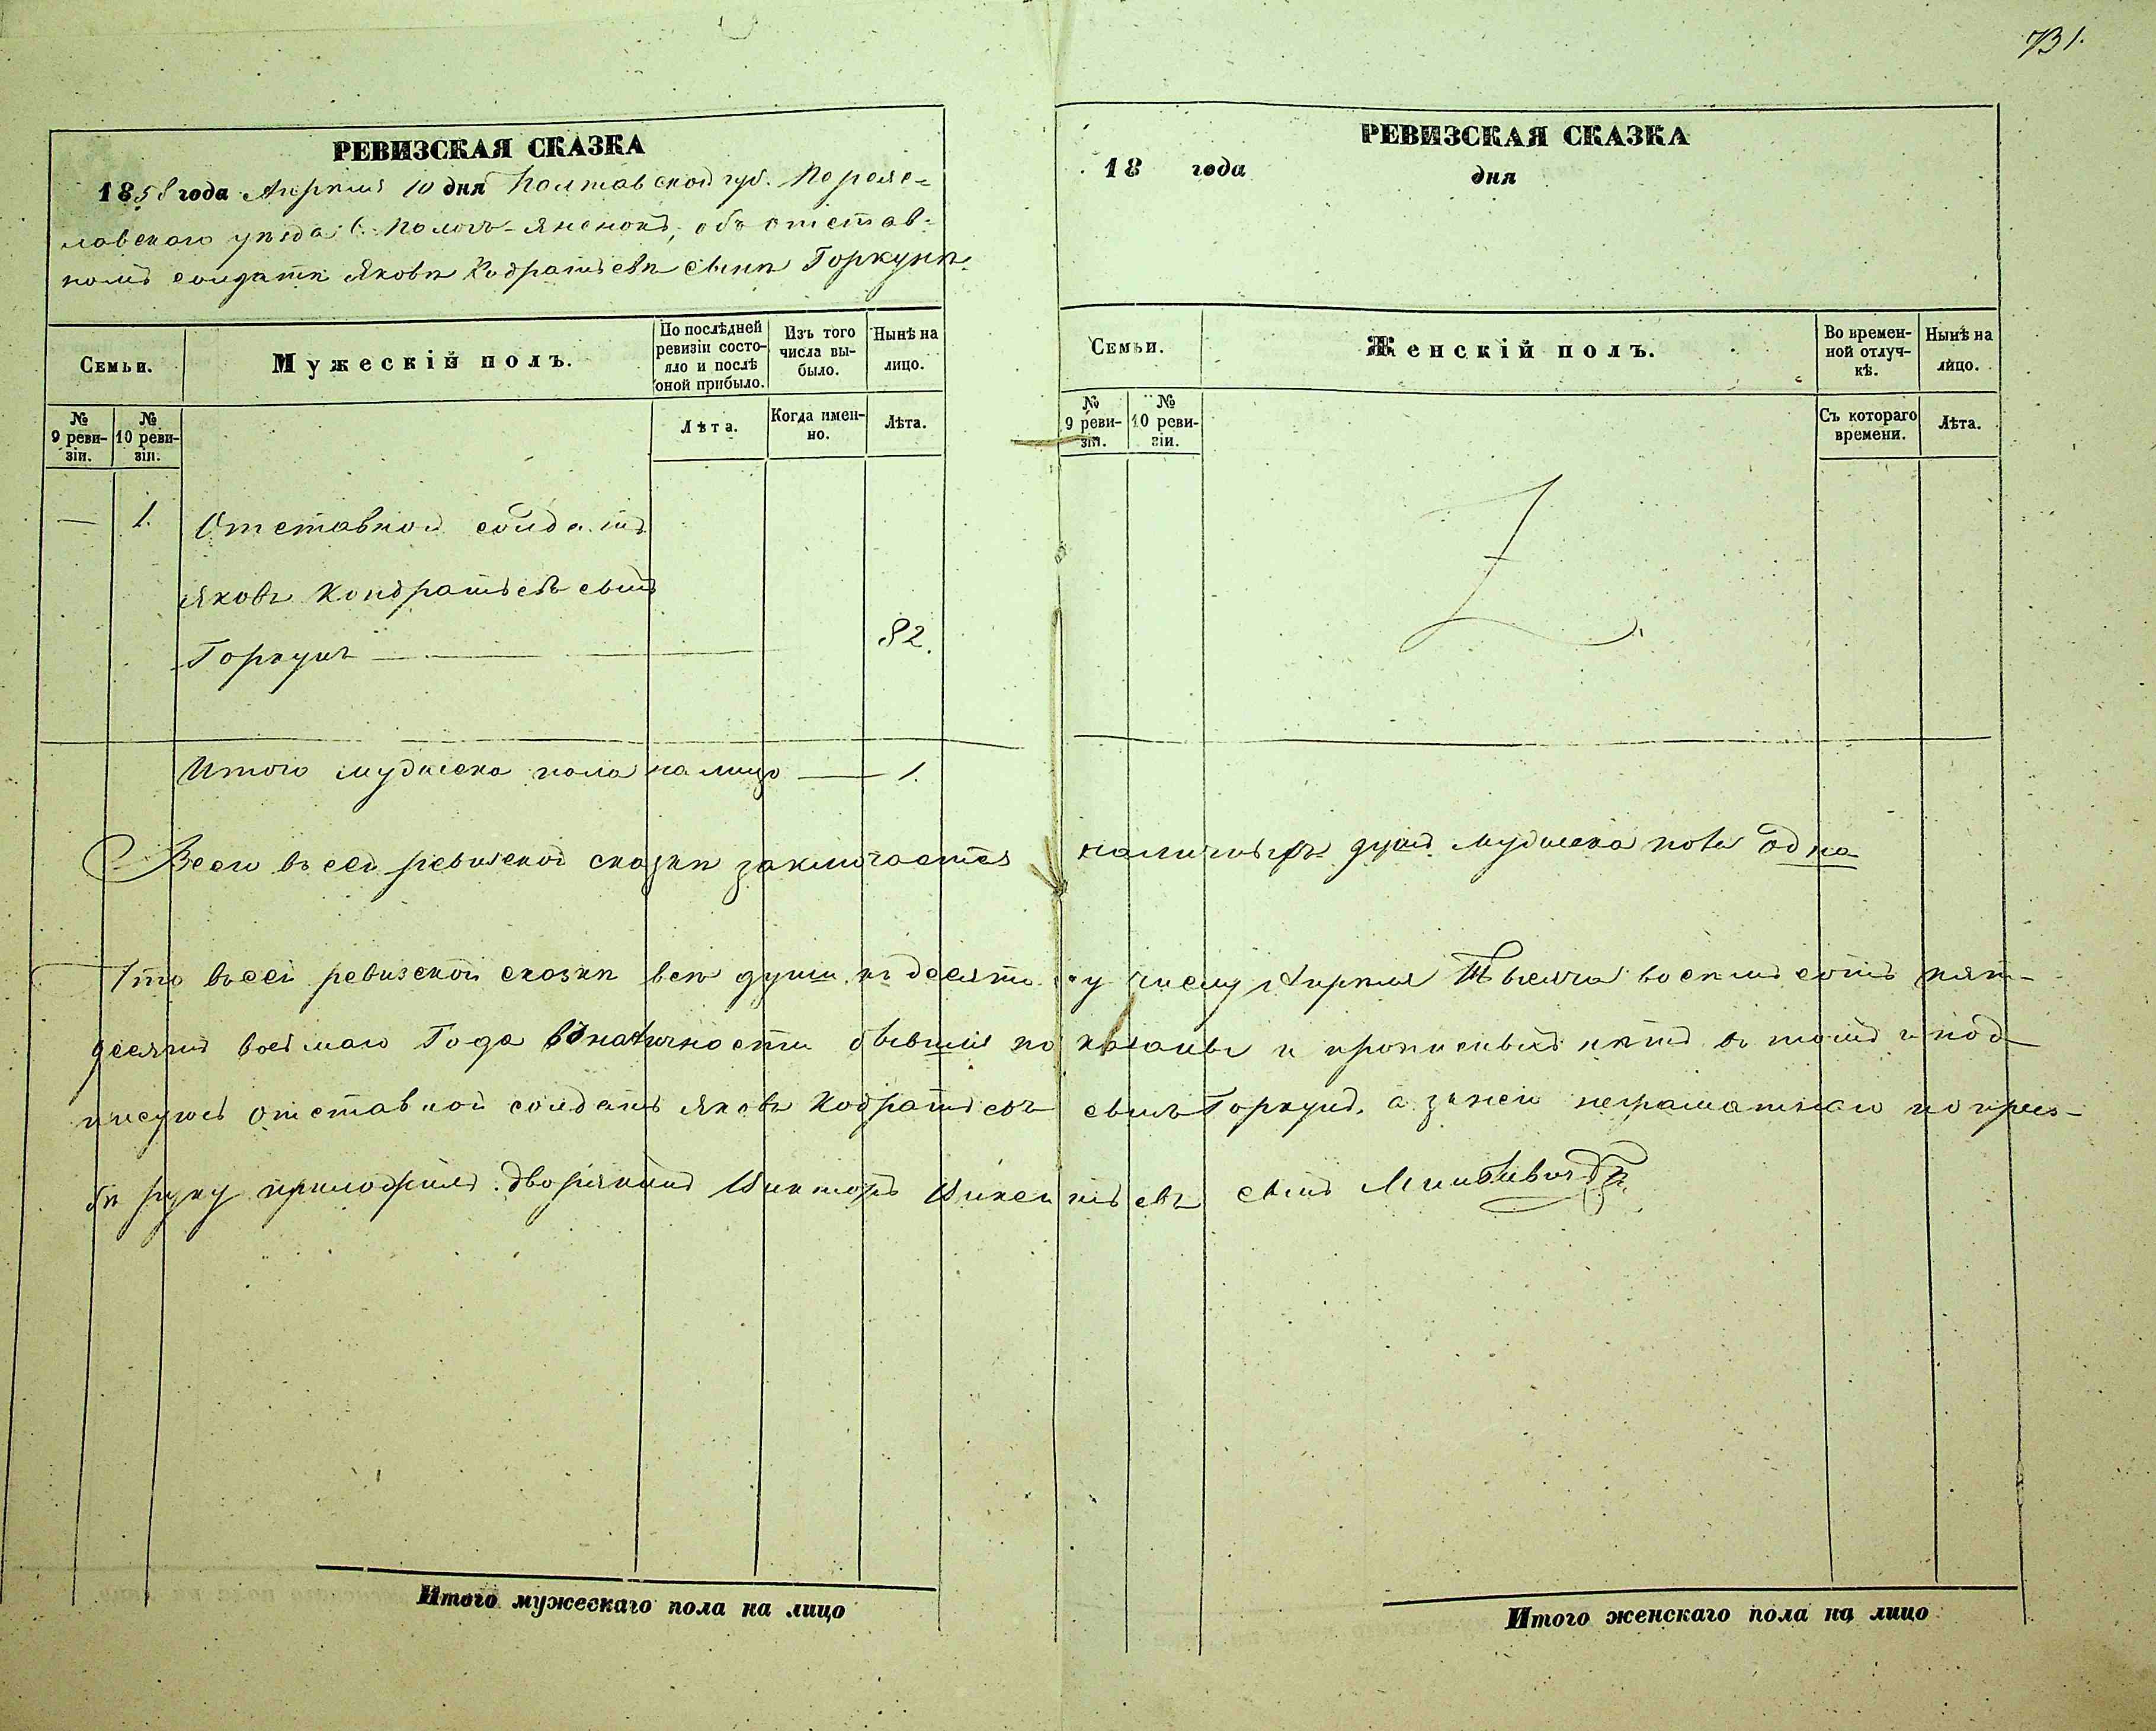 731.
РЕВИЗСКАЯ СКАЗКА
1858 года Апреля 10 дня Полтавской губ. Переяс-
лавскаго уѣзда С. Помочъ-Яненокъ, объ отстав-
номъ солдатѣ Яковѣ Кодратьевѣ сынѣ Горкунѣ.
Семьи.
Мужескій полъ.
По послѣдней ревизіи состо-яло и послѣ оной прибыло.
Изъ того числа вы-было.
Нынѣ на лицо.
№ 9 реви-зіи.
№ 10 реви-зіи.
Лѣта.
Когда имен-но.
Лѣта.
— 1. Отставной солдатъ
Яковъ Кондратьевъ сынъ
Горкунъ — 82.
Итого мужеска пола на лицо — 1.
РЕВИЗСКАЯ СКАЗКА
18 года дня
Семьи.
Женскій полъ.
Во времен-ной отлуч-кѣ.
Нынѣ на лицо.
№ 9 реви-зіи.
№ 10 реви-зіи.
Съ котораго времени.
Лѣта.
Всего въ сей ревизской сказкѣ заключается наличныхъ душъ мужеска пола одна
Что въ сей ревизской сказкѣ всѣ души къ десятому числу Апреля Тысяча восемь сотъ пят-
десятъ восьмаго Года въ наличности бывшія показаны и прописныхъ нѣтъ въ томъ и под-
писуюсь отставной солдатъ Яковъ Кодратьевъ сынъ Горкунъ, а за неи неграматнаго по прозь-
бѣ руку приложилъ дворянинъ Викторъ Викентьевъ сынъ
Итого мужескаго пола на лицо
Итого женскаго пола на лицо